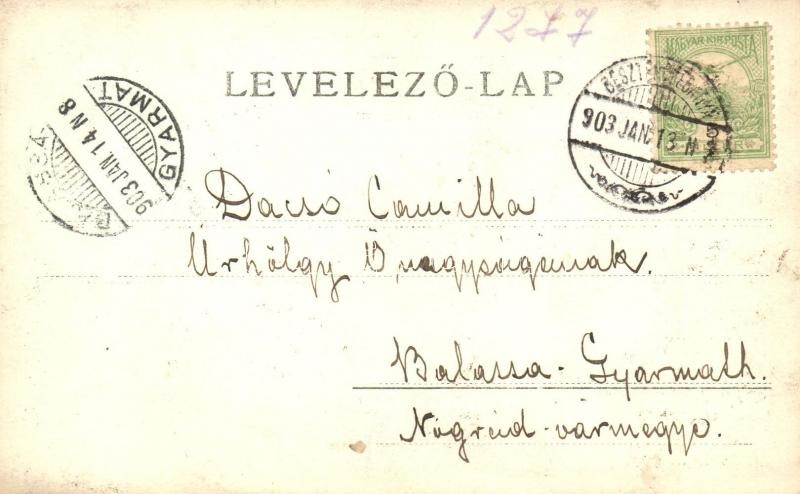 1277
MAGYAR KIR. POSTA
LEVELEZŐ-LAP
903 JAN. 13 N
GYARMAT
903 JAN 14 N 8
Dacsó Camilla
Úrhölgy Ő nagyságának.
Balassa-Gyarmath.
Nógrád-vármegye.